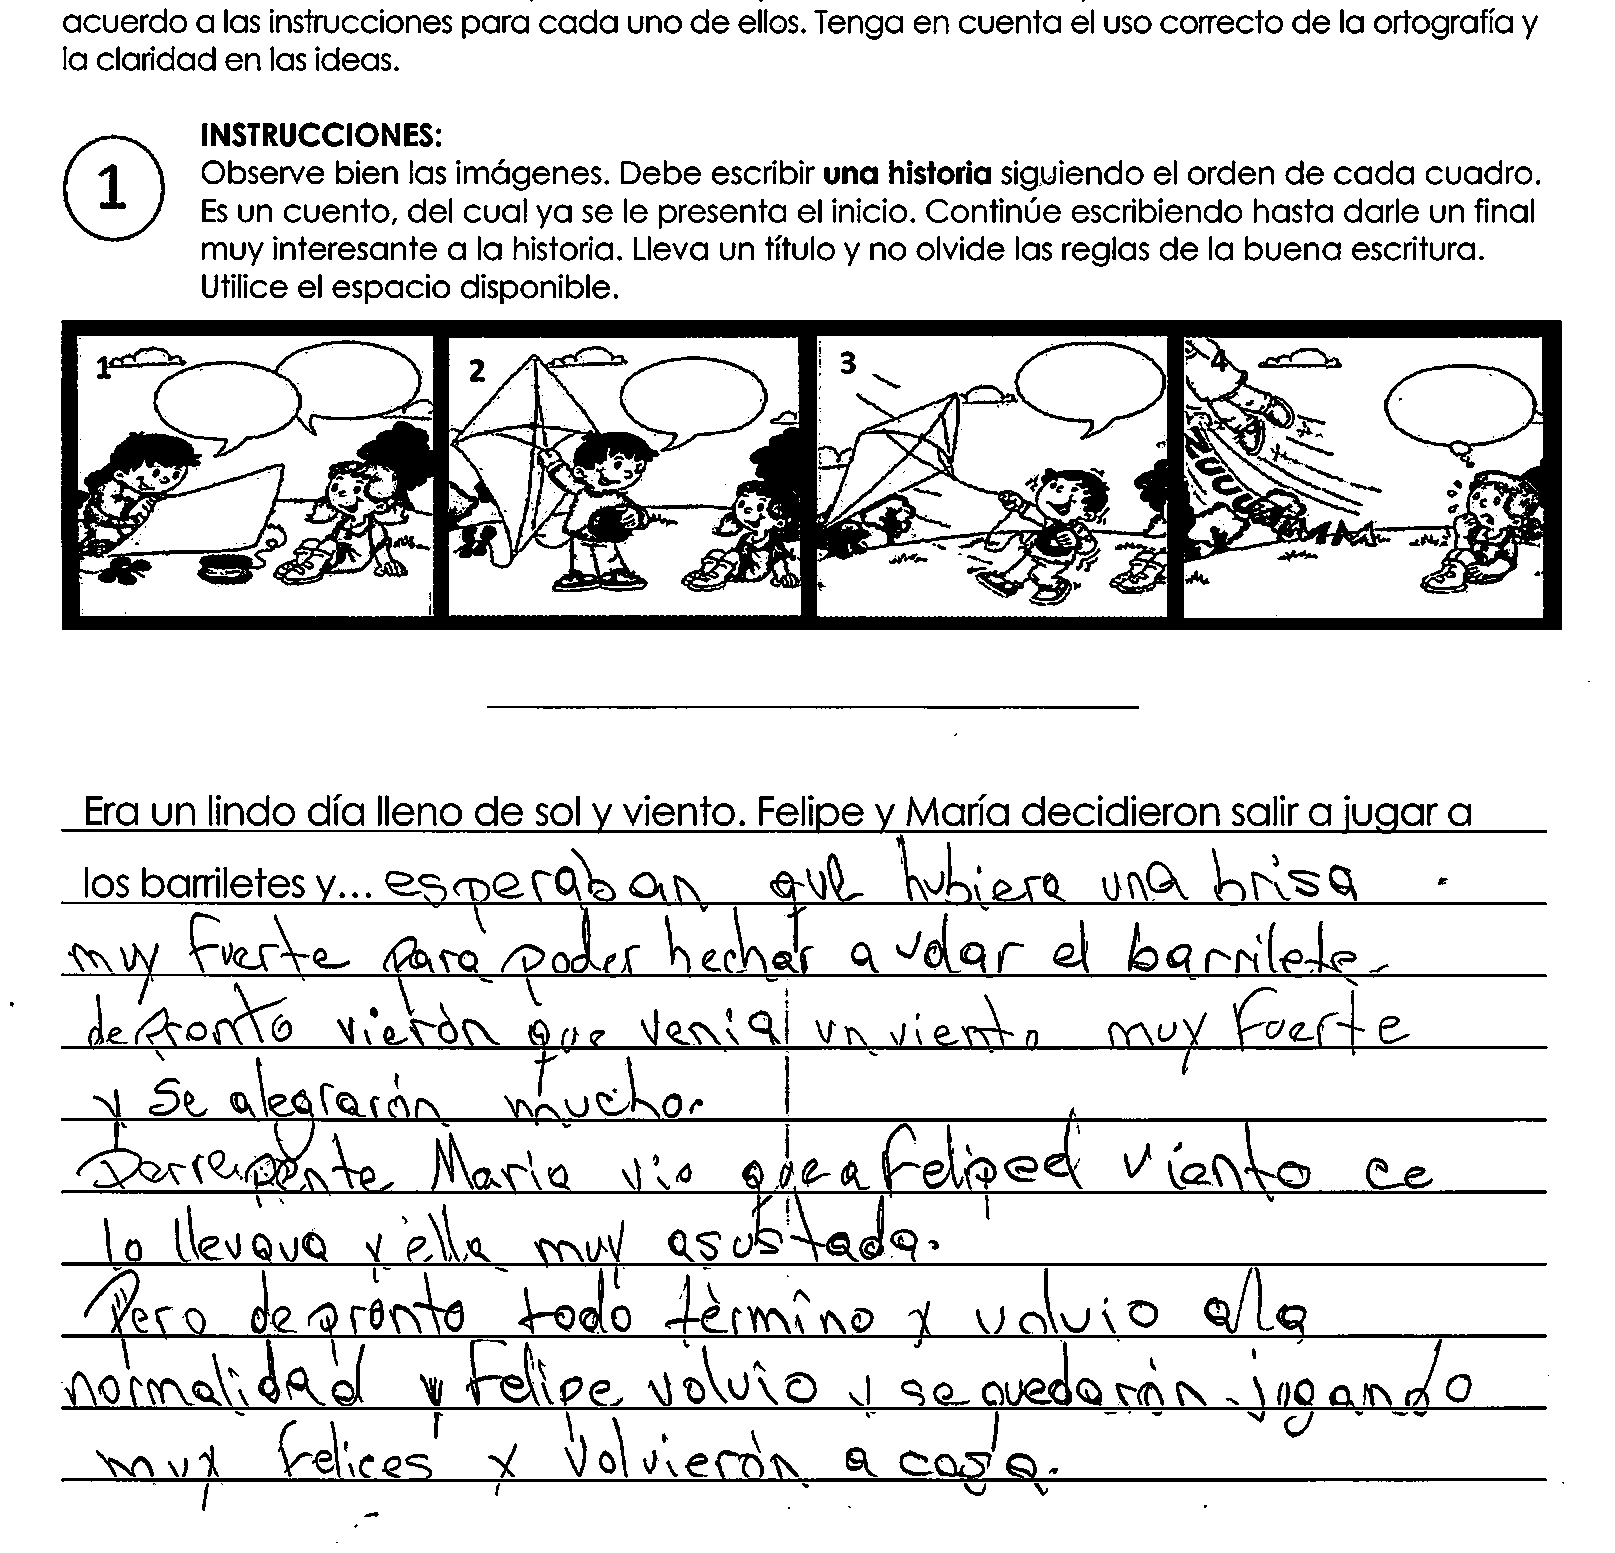 acuerdo a las instrucciones para cada uno de ellos. Tenga en cuenta el uso correcto de la ortografía y
la claridad en las ideas.
1
INSTRUCCIONES:
Observe bien las imágenes. Debe escribir una historia siguiendo el orden de cada cuadro.
Es un cuento, del cual ya se le presenta el inicio. Continúe escribiendo hasta darle un final
muy interesante a la historia. Lleva un título y no olvide las reglas de la buena escritura.
Utilice el espacio disponible.
1 2 3 4
ZUUU
Era un lindo día lleno de sol y viento. Felipe y María decidieron salir a jugar a
los barriletes y... esperaban que hubiera una brisa
muy fuerte para poder hechar a volar el barrilete
de pronto vierón que venia un viento muy fuerte
y se alegrarón mucho.
Derrepente Maria vio que a Felipe el viento ce
lo llevava y ella muy asustada.
Pero de pronto todo término y volvio a la
normalidad y Felipe volvio y se quedarón jugando
muy felices y volvierón a casa.